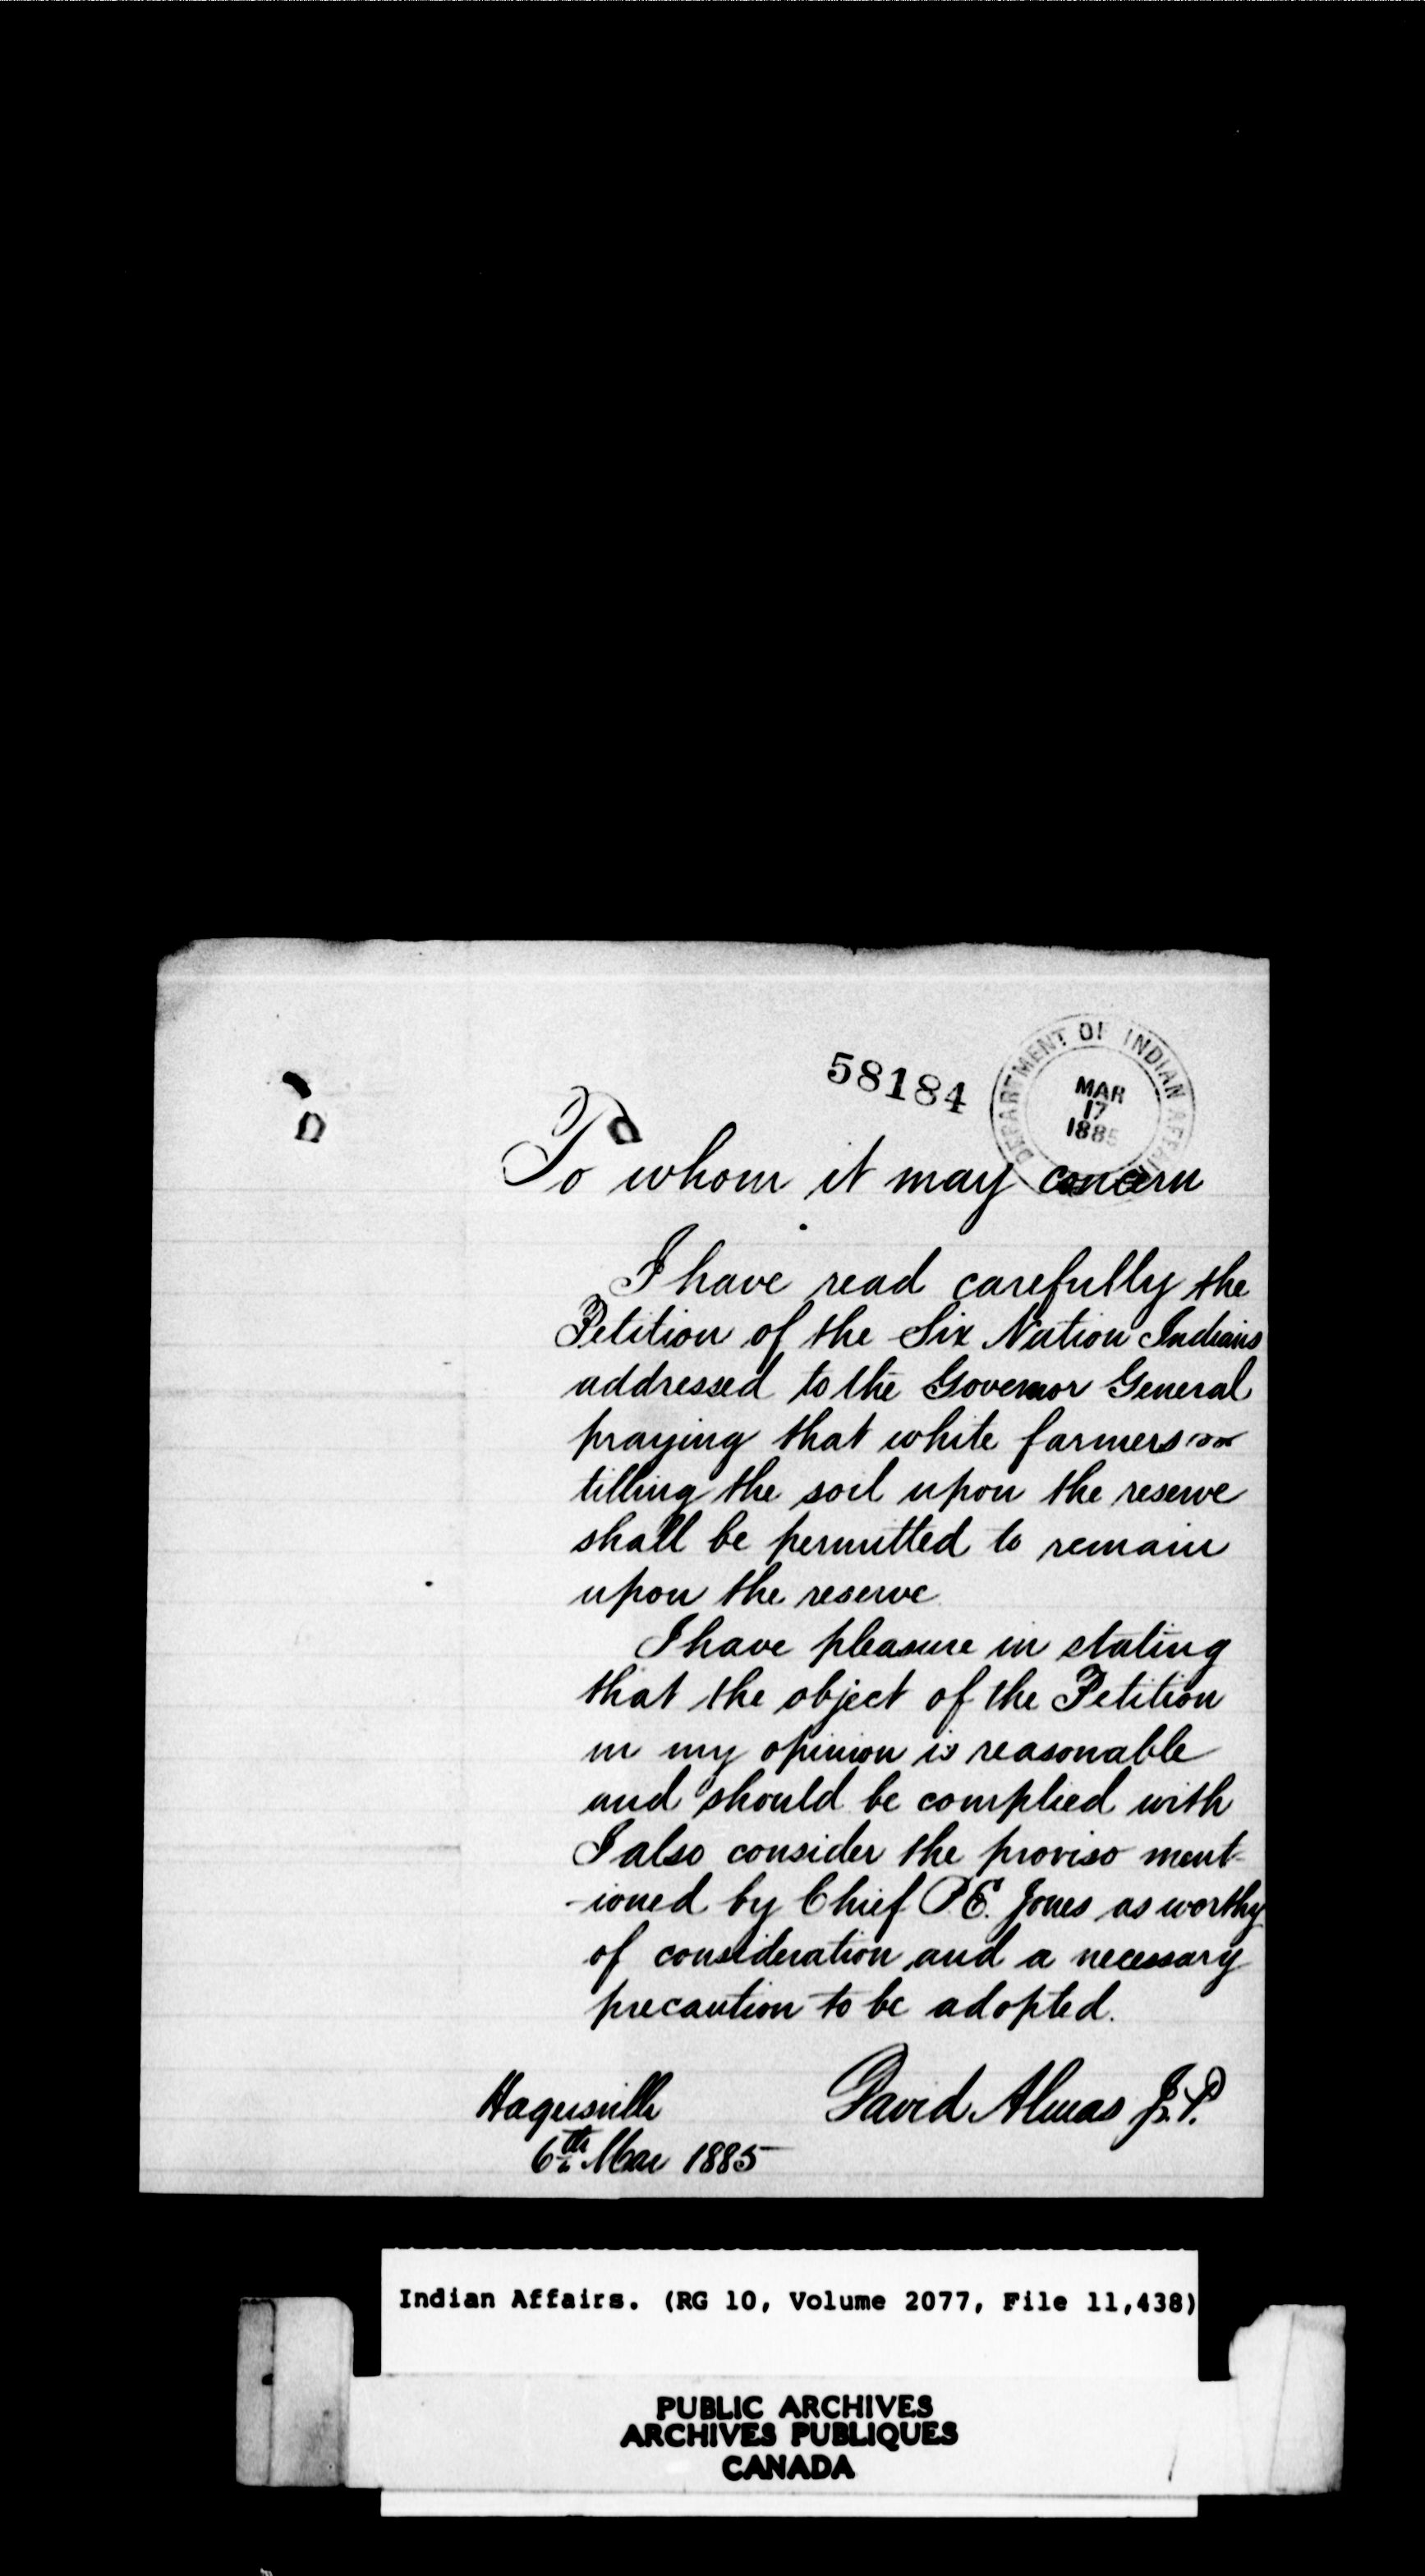 58184
DEPARTMENT OF INDIAN AFFAI
MAR
17
1885
To whom it may concern
I have read carefully the
Petition of the Six Nation Indians
addressed to the Governor General
praying that white farmers
tilling the soil upon the reserve
shall be permitted to remain
upon the reserve
I have pleasure in stating
that the object of the Petition
in my opinion is reasonable
and should be complied with
I also consider the proviso ment-
-ioned by Chief P.E. Jones as worthy
of consideration and a necessary
precaution to be adopted.
David Almas J.P.
Hagersville
6th Mar 1885
Indian Affairs. (RG 10, Volume 2077, File 11,438)
PUBLIC ARCHIVES
ARCHIVES PUBLIQUES
CANADA